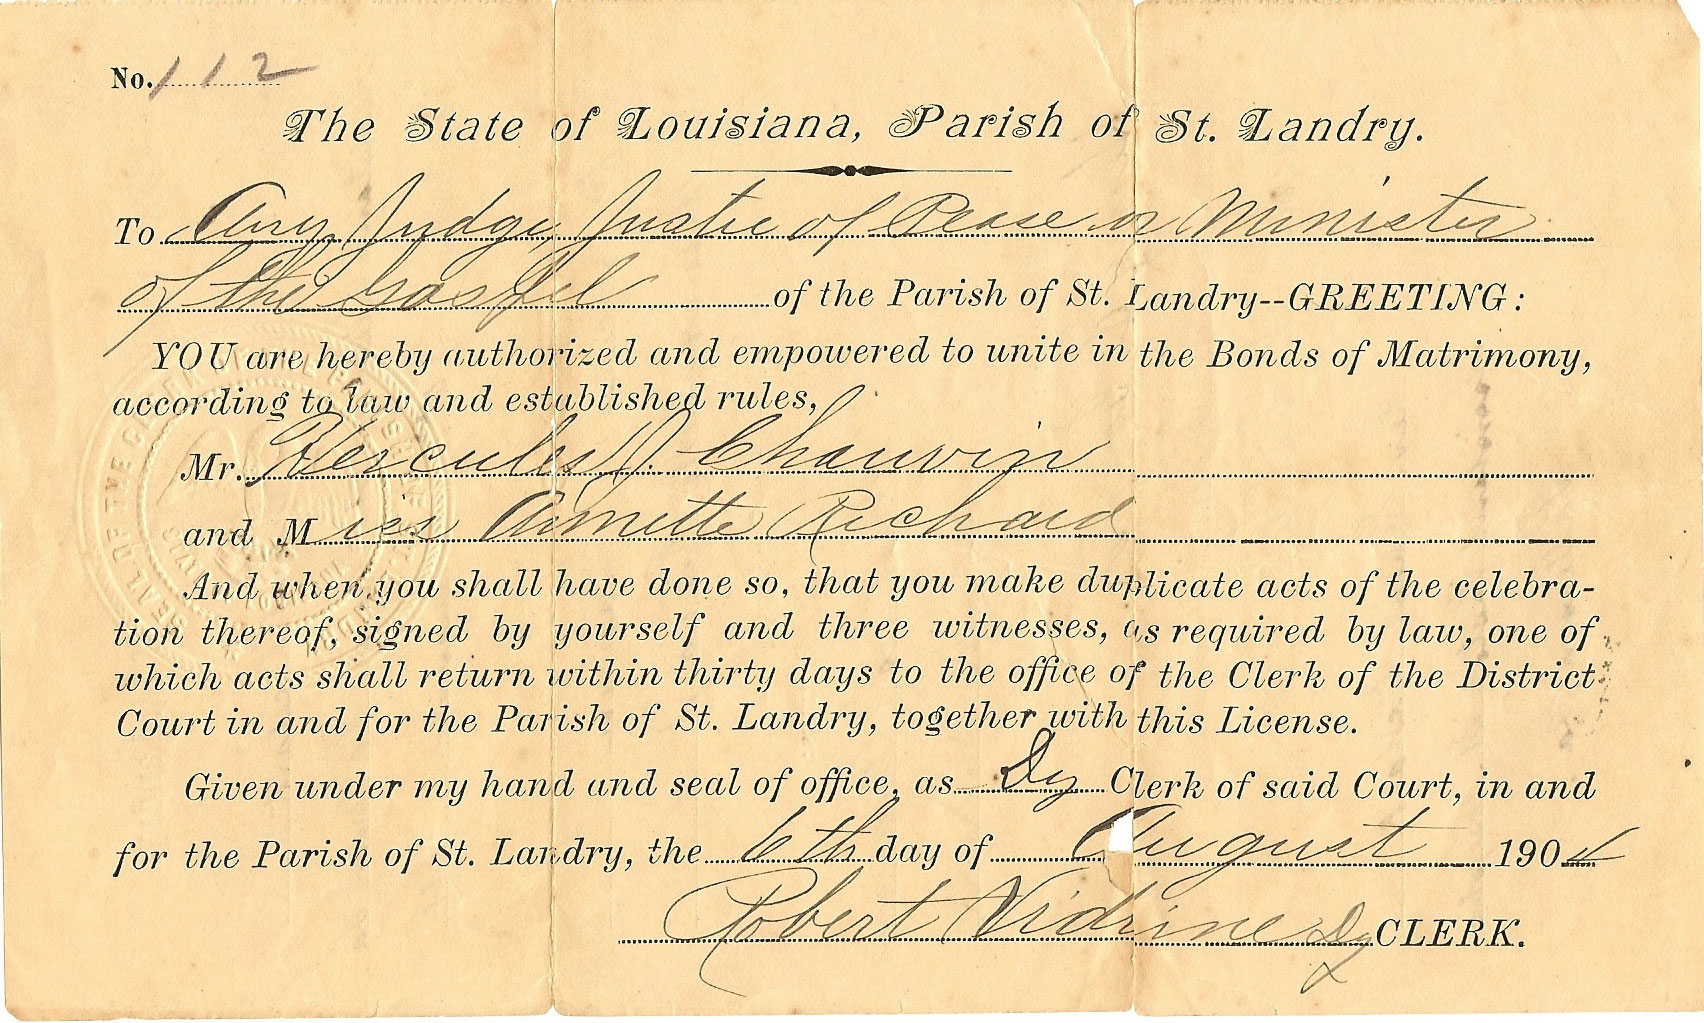 No. 112
The State of Louisiana, Parish of St. Landry.
To Any Judge, Justic of Pease or Minister
of the Gospel of the Parish of St. Landry--GREETING:
YOU are hereby authorized and empowered to unite in the Bonds of Matrimony,
according to law and established rules,
Mr. Hercules J. Chauvin
and Miss Annette Richard
And when you shall have done so, that you make duplicate acts of the celebra-
tion thereof, signed by yourself and three witnesses, as required by law, one of
which acts shall return within thirty days to the office of the Clerk of the District
Court in and for the Parish of St. Landry, together with this License.
Given under my hand and seal of office, as Dy Clerk of said Court, in and
for the Parish of St. Landry, the 6th day of August 1904
Robert Vidrine Dy CLERK.
SEAL OF THE